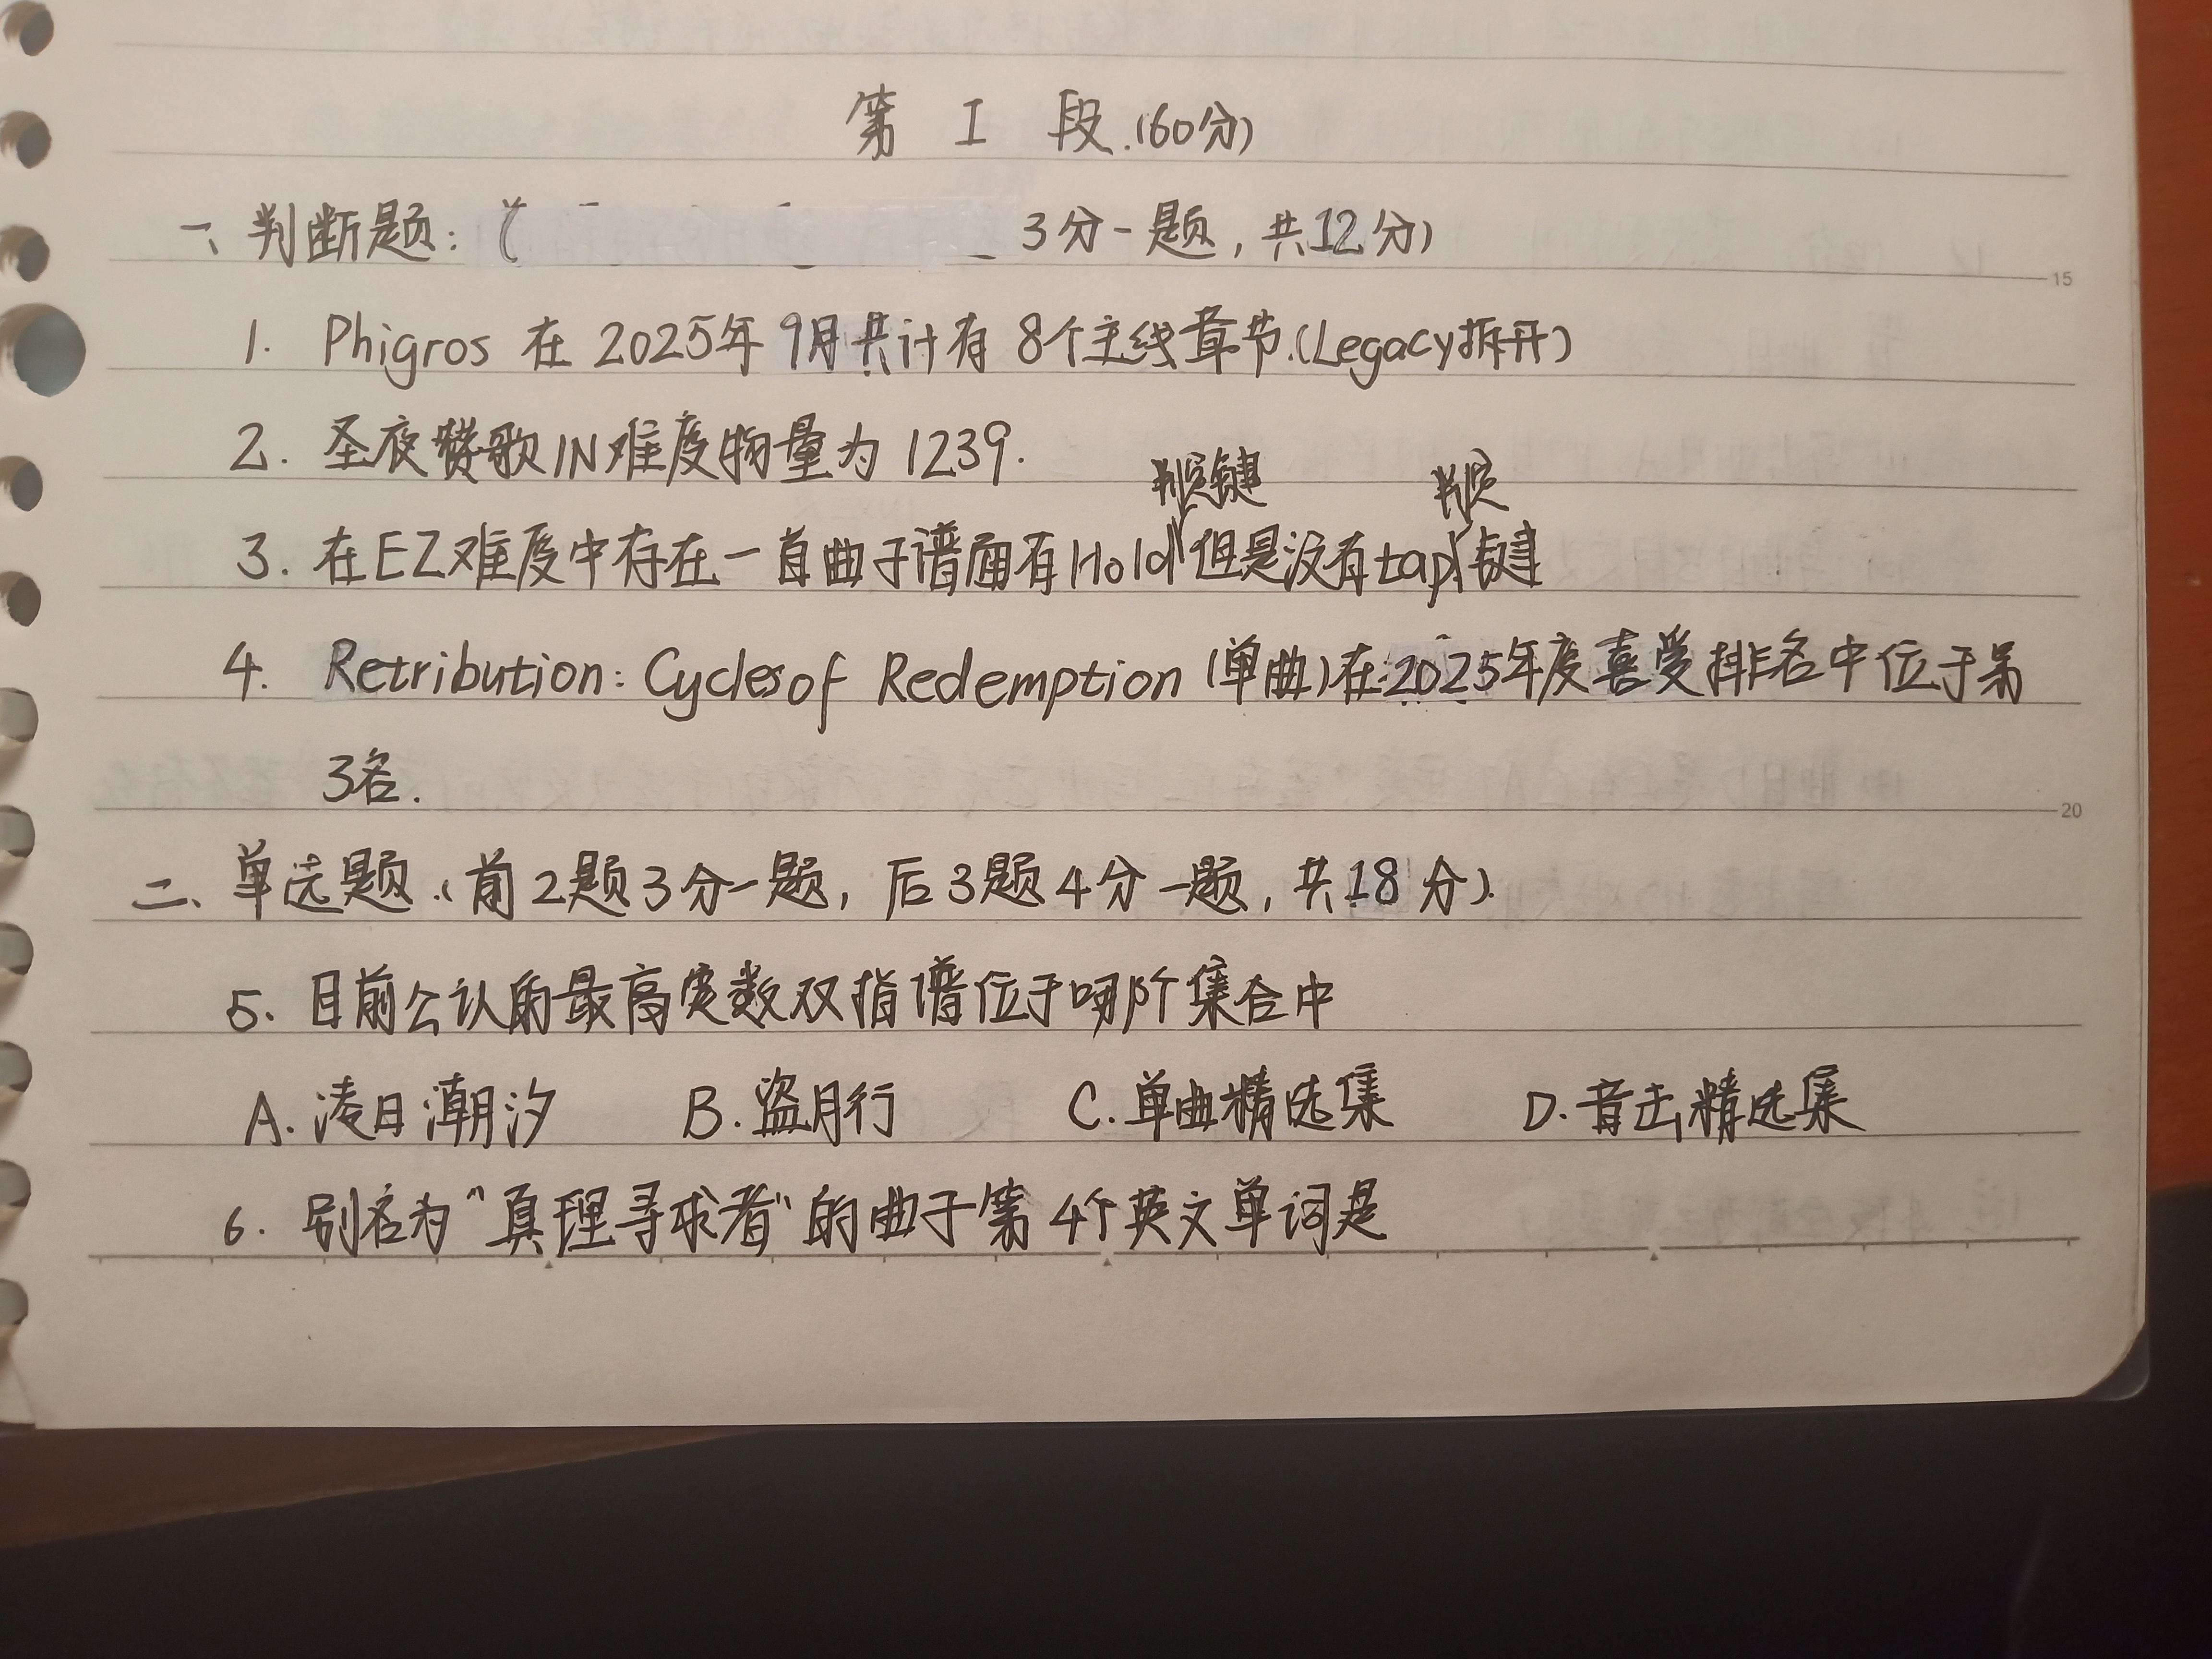 第 I 段.(60分)
一、判断题:( 3分一题,共12分)
15
1. Phigros 在 2025年9月共计有 8个主线章节.(Legacy拆开)
2. 圣夜赞歌IN难度物量为 1239.
判定键 判定
3. 在EZ难度中存在一首曲子谱面有Hold但是没有tap键
4. Retribution: Cycles of Redemption (单曲)在2025年度喜爱排名中位于第
3名.
20
二、单选题.(前2题3分一题,后3题4分一题,共18分).
5. 目前公认的最高定数双指谱位于哪个集合中
A. 凌日潮汐 B. 盗月行 C. 单曲精选集 D. 音击精选集
6. 别名为"真理寻求者"的曲子第4个英文单词是